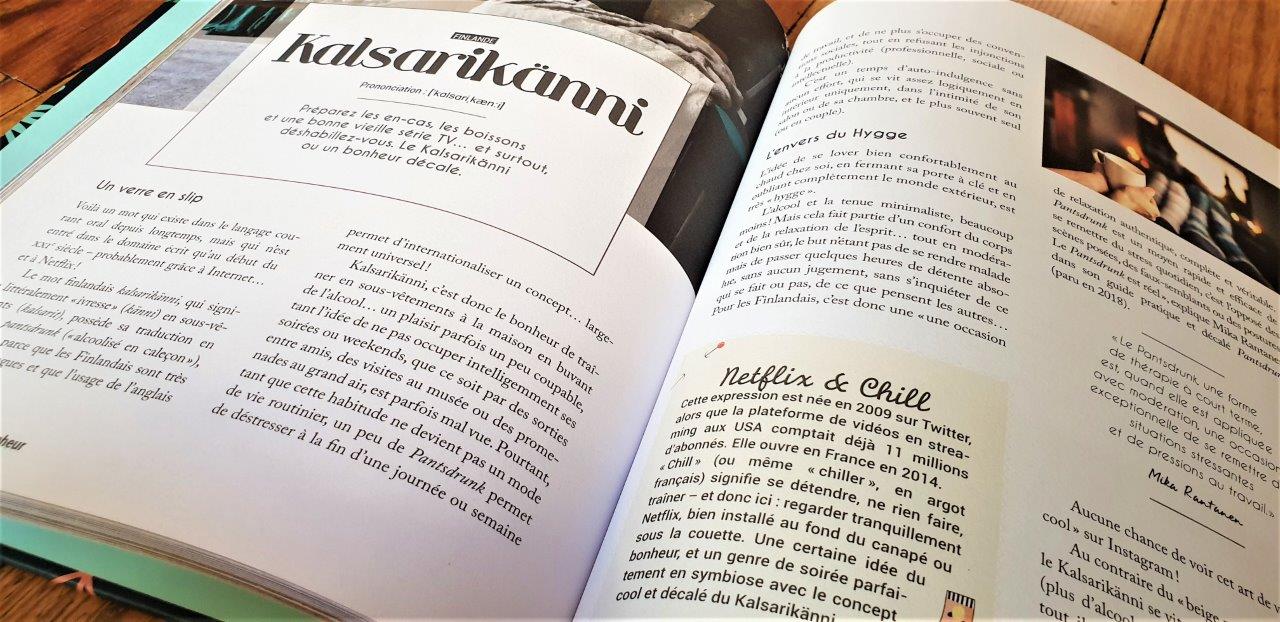 FINLANDE
Kalsarikänni
Prononciation : ['kalsari,kæn:i]
Préparez les en-cas, les boissons
et une bonne vieille série TV... et surtout,
déshabillez-vous. Le Kalsarikänni
ou un bonheur décalé.
Un verre en slip
Voilà un mot qui existe dans le langage cou-
rant oral depuis longtemps, mais qui n'est
entré dans le domaine écrit qu'au début du
XXIe siècle – probablement grâce à Internet...
et à Netflix !
Le mot finlandais kalsarikänni, qui signi-
littéralement « ivresse » (känni) en sous-vê-
ts (kalsarit), possède sa traduction en
pantsdrunk (« alcoolisé en caleçon »),
parce que les Finlandais sont très
gues et que l'usage de l'anglais
permet d'internationaliser un concept... large-
ment universel !
Kalsarikänni, c'est donc le bonheur de traî-
ner en sous-vêtements à la maison en buvant
de l'alcool... un plaisir parfois un peu coupable,
tant l'idée de ne pas occuper intelligemment ses
soirées ou weekends, que ce soit par des sorties
entre amis, des visites au musée ou des prome-
nades au grand air, est parfois mal vue. Pourtant,
tant que cette habitude ne devient pas un mode
de vie routinier, un peu de Pantsdrunk permet
de déstresser à la fin d'une journée ou semaine
heur
de travail, et de ne plus s'occuper des conven-
sociales, tout en refusant les injonctions
à la productivité (professionnelle, sociale ou
intellectuelle).
C'est un temps d'auto-indulgence sans
aucun effort, qui se vit assez logiquement en
intérieur uniquement, dans l'intimité de son
salon ou de sa chambre, et le plus souvent seul
(ou en couple).
L'envers du Hygge
L'idée de se lover bien confortablement au
chaud chez soi, en fermant sa porte à clé et en
oubliant complètement le monde extérieur, est
très « hygge ».
L'alcool et la tenue minimaliste, beaucoup
moins ! Mais cela fait partie d'un confort du corps
et de la relaxation de l'esprit... tout en modéra-
tion bien sûr, le but n'étant pas de se rendre malade
mais de passer quelques heures de détente abso-
lue, sans aucun jugement, sans s'inquiéter de ce
qui se fait ou pas, de ce que pensent les autres...
Pour les Finlandais, c'est donc une « une occasion
Netflix & Chill
Cette expression est née en 2009 sur Twitter,
alors que la plateforme de vidéos en strea-
ming aux USA comptait déjà 11 millions
d'abonnés. Elle ouvre en France en 2014.
« Chill » (ou même « chiller », en argot
français) signifie se détendre, ne rien faire,
trainer – et donc ici : regarder tranquillement
Netflix, bien installé au fond du canapé ou
sous la couette. Une certaine idée du
bonheur, et un genre de soirée parfai-
tement en symbiose avec le concept
cool et décalé du Kalsarikänni.
de relaxation authentique, complète et véritable.
Pantsdrunk est un moyen rapide et efficace de
se remettre du stress quotidien, c'est l'opposé des
scènes posées, des faux-semblants ou des postures.
Le Pantsdrunk est réel », explique Mika Rantanen
dans son guide pratique et décalé Pantsdrunk
(paru en 2018).
« Le Pantsdrunk, une forme
de thérapie à court terme,
est, quand elle est appliquée
avec modération, une occasion
exceptionnelle de se remettre de
situations stressantes
et de pressions au travail. »
Mika Rantanen
Aucune chance de voir cet art de v
cool » sur Instagram !
Au contraire du « beige
le Kalsarikänni se vit
(plus d'alcool
tout